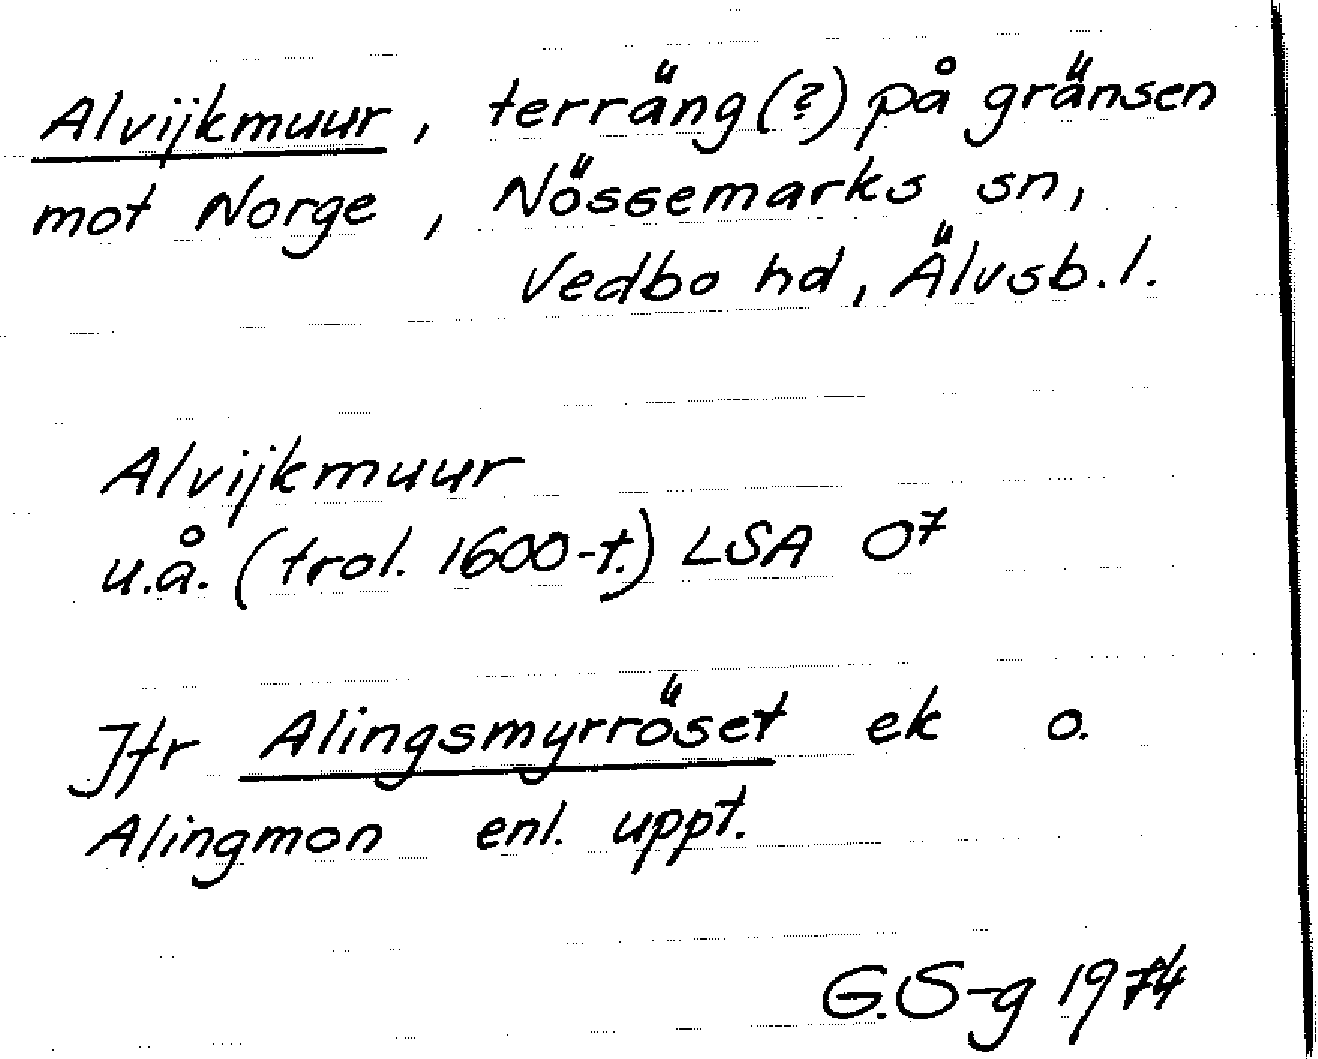 Alvijkmuur, terräng(?) på gränsen
mot Norge, Nössemarks sn,
Vedbo hd, Älvsb.l.
Alvijkmuur
u.å. (trol. 1600-t.) LSA O⁷
Jfr Alingsmyrröset ek o.
Alingmon enl. uppt.
G.S-g 1974